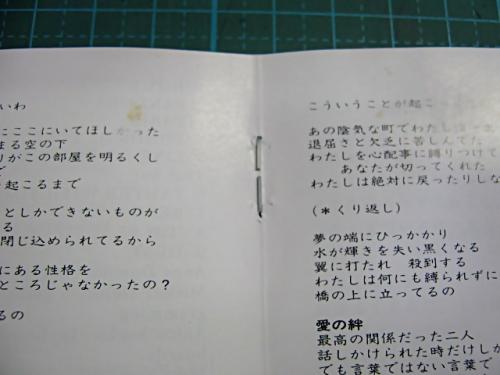 いわ
にここにいてほしかった
まる空の下
りがこの部屋を明るくし
で
起こるまで
としかできないものが
る
閉じ込められてるから
にある性格を
ところじゃなかったの？
るの
こういうことが起こ
あの陰気な町でわたしは
退屈さと欠乏に苦しんでた
わたしを心配事に縛りつけて
あなたが切ってくれた
わたしは絶対に戻ったりしな
(＊くり返し)
夢の端にひっかかり
水が輝きを失い黒くなる
翼に打たれ 殺到する
わたしは何にも縛られずに
橋の上に立ってるの
愛の絆
最高の関係だった二人
話しかけられた時だけしか
でも言葉ではない言葉で